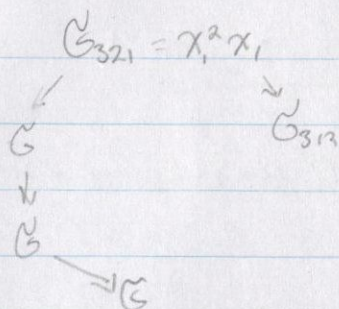 𝔖₃₂₁ = x₁² x₁
𝔖 𝔖₃₁₂
𝔖
𝔖